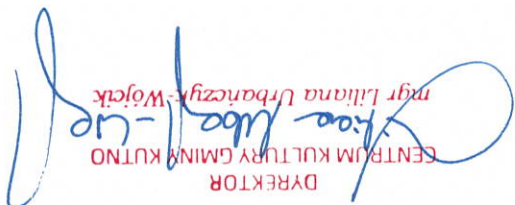 DYREKTOR
CENTRUM KULTURY GMINY KUTNO
mgr Liliana Urbańczyk-Wójcik